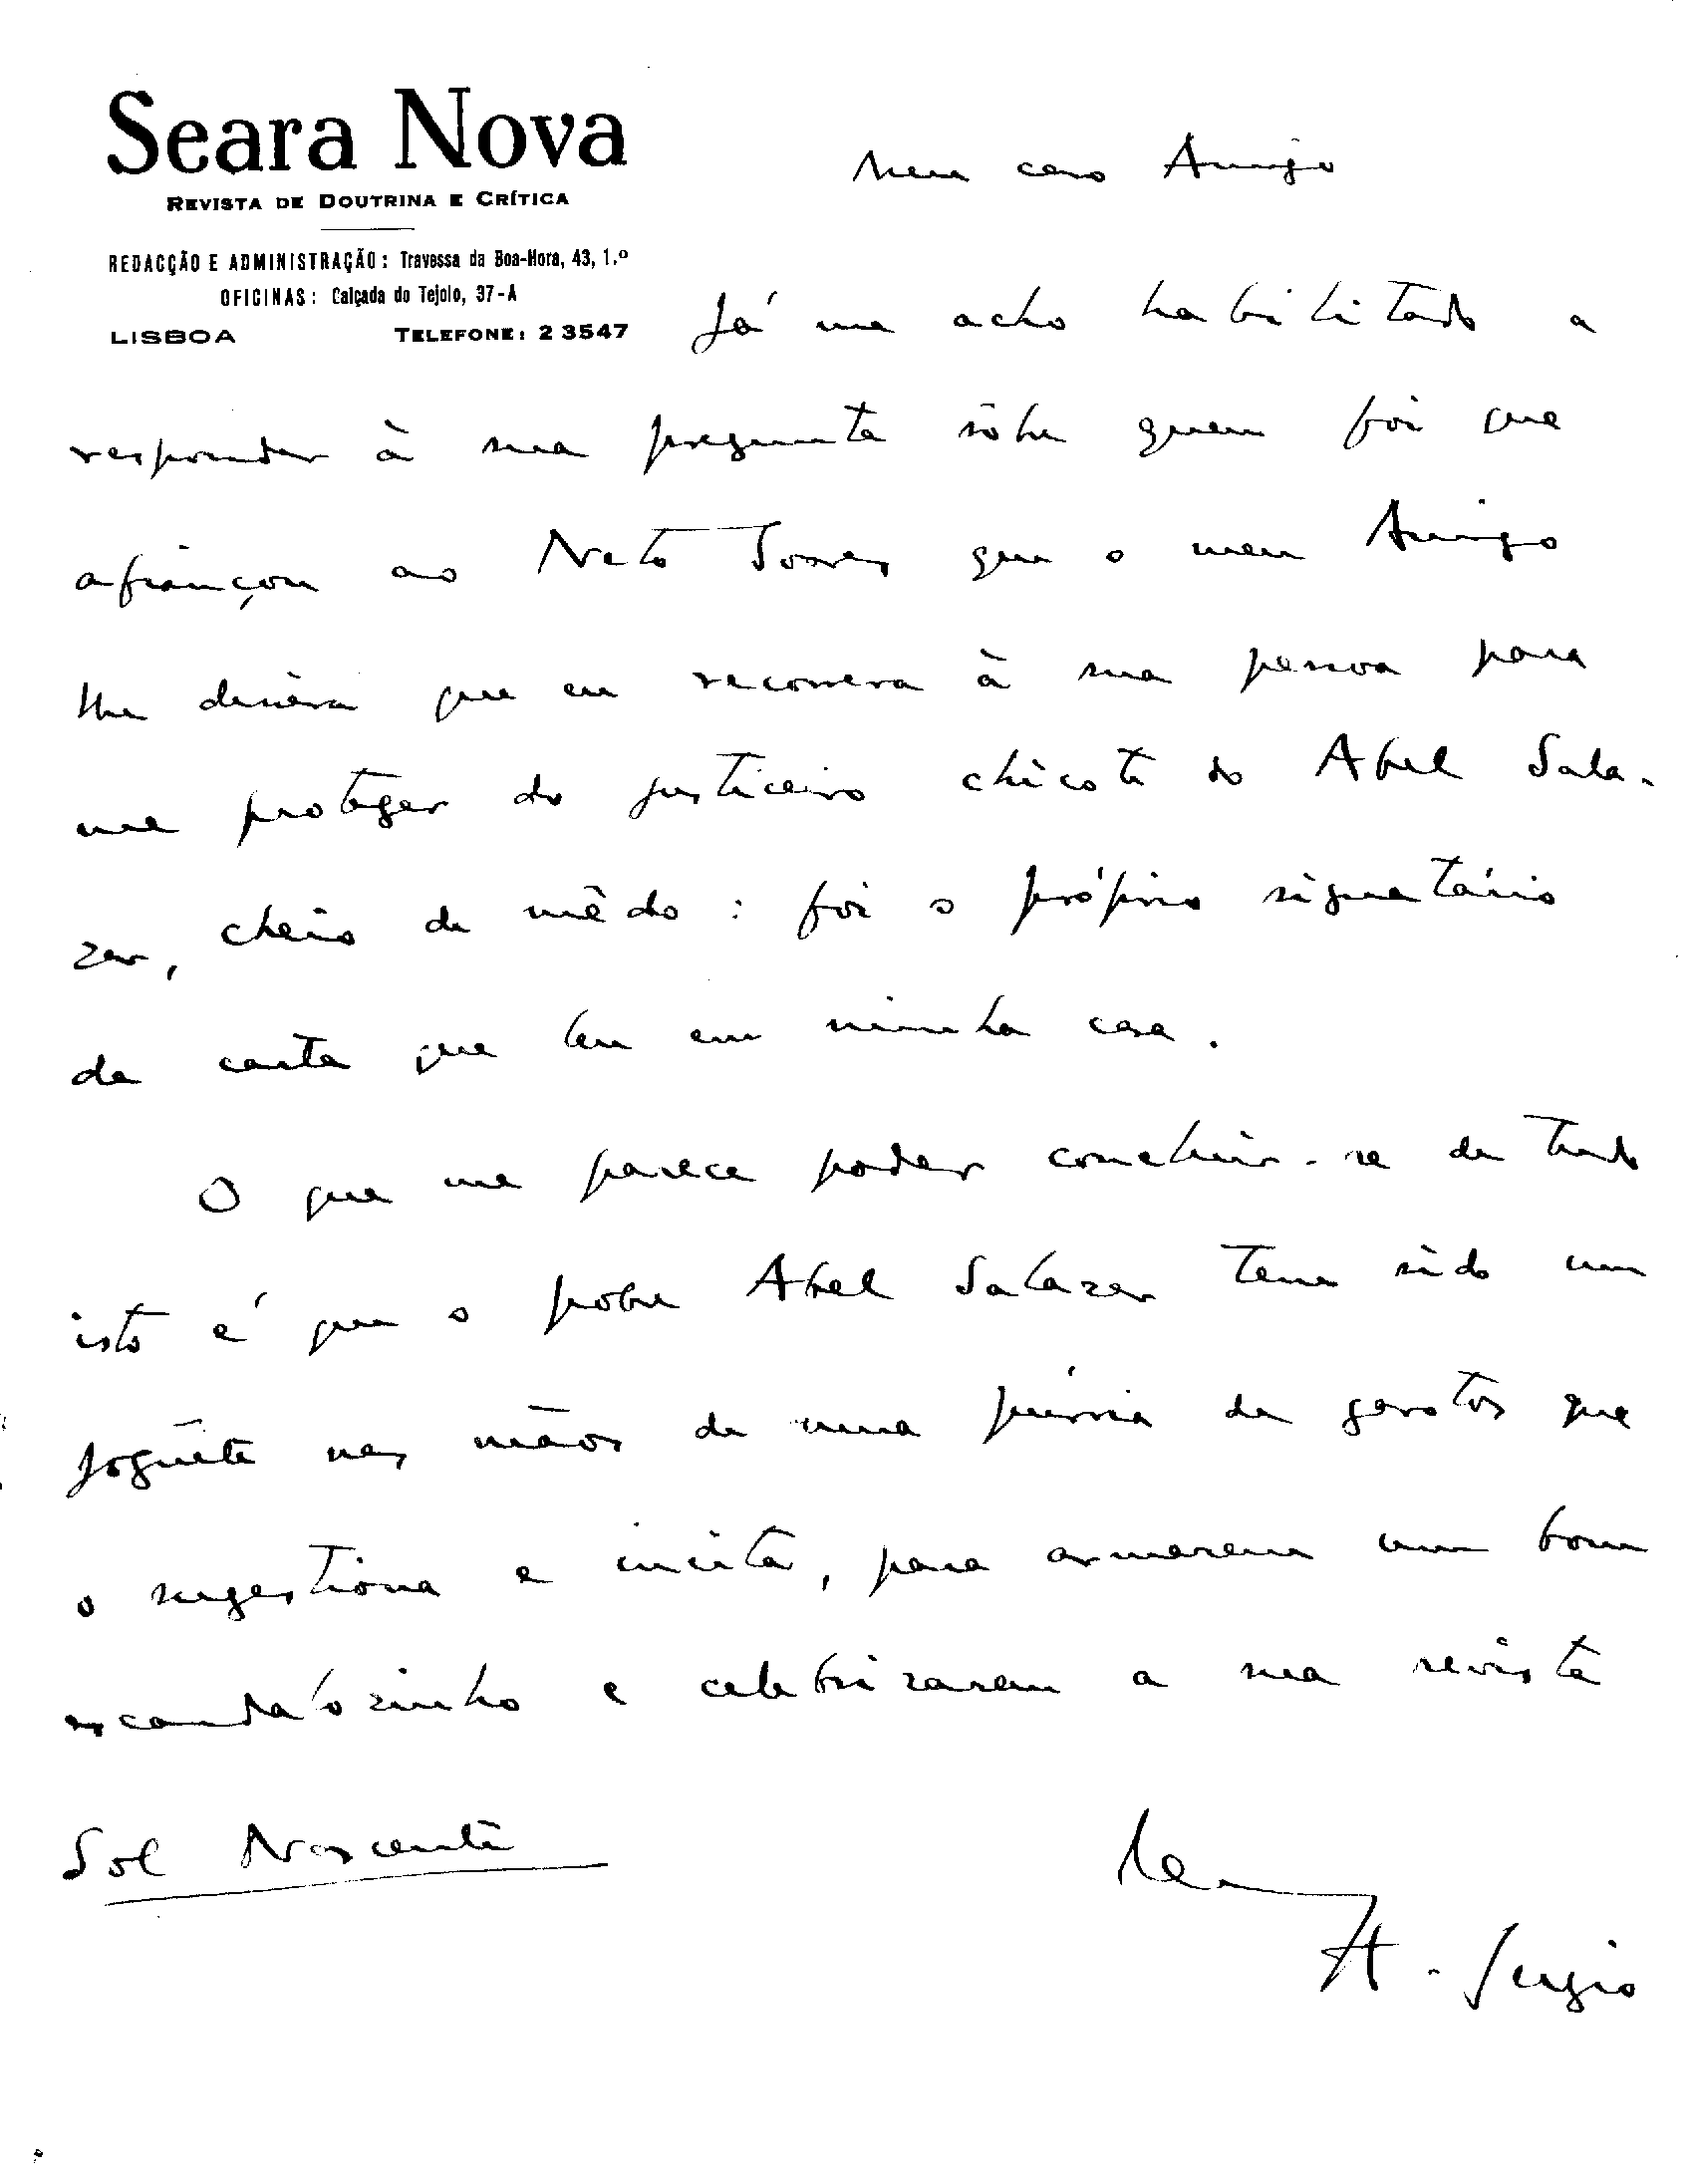 Seara Nova
REVISTA DE DOUTRINA E CRÍTICA
REDACÇÃO E ADMINISTRAÇÃO: Travessa da Boa-Hora, 43, 1.º
OFICINAS: Calçada do Tejolo, 37-A
LISBOA TELEFONE: 2 3547
Meu caro Amigo
Já me acho habilitado a
responder à sua pregunta sôbre quem foi que
afiançou ao Neto que o meu Amigo
lhe dissera que eu recorrera à sua pessoa para
me proteger do justiceiro chicote do Abel Sala-
zar, cheio de mêdo: foi o próprio signatário
da carta que leu em minha casa.
O que me parece poder concluir-se de tudo
isto é que o pobre Abel Salazar tem sido um
joguête nas mãos de uma púrria de garotos que
o sugestiona e incita, para armarem um bom
escandalozinho e celebrizarem a sua revista
Sol Nascente
A. Sergio